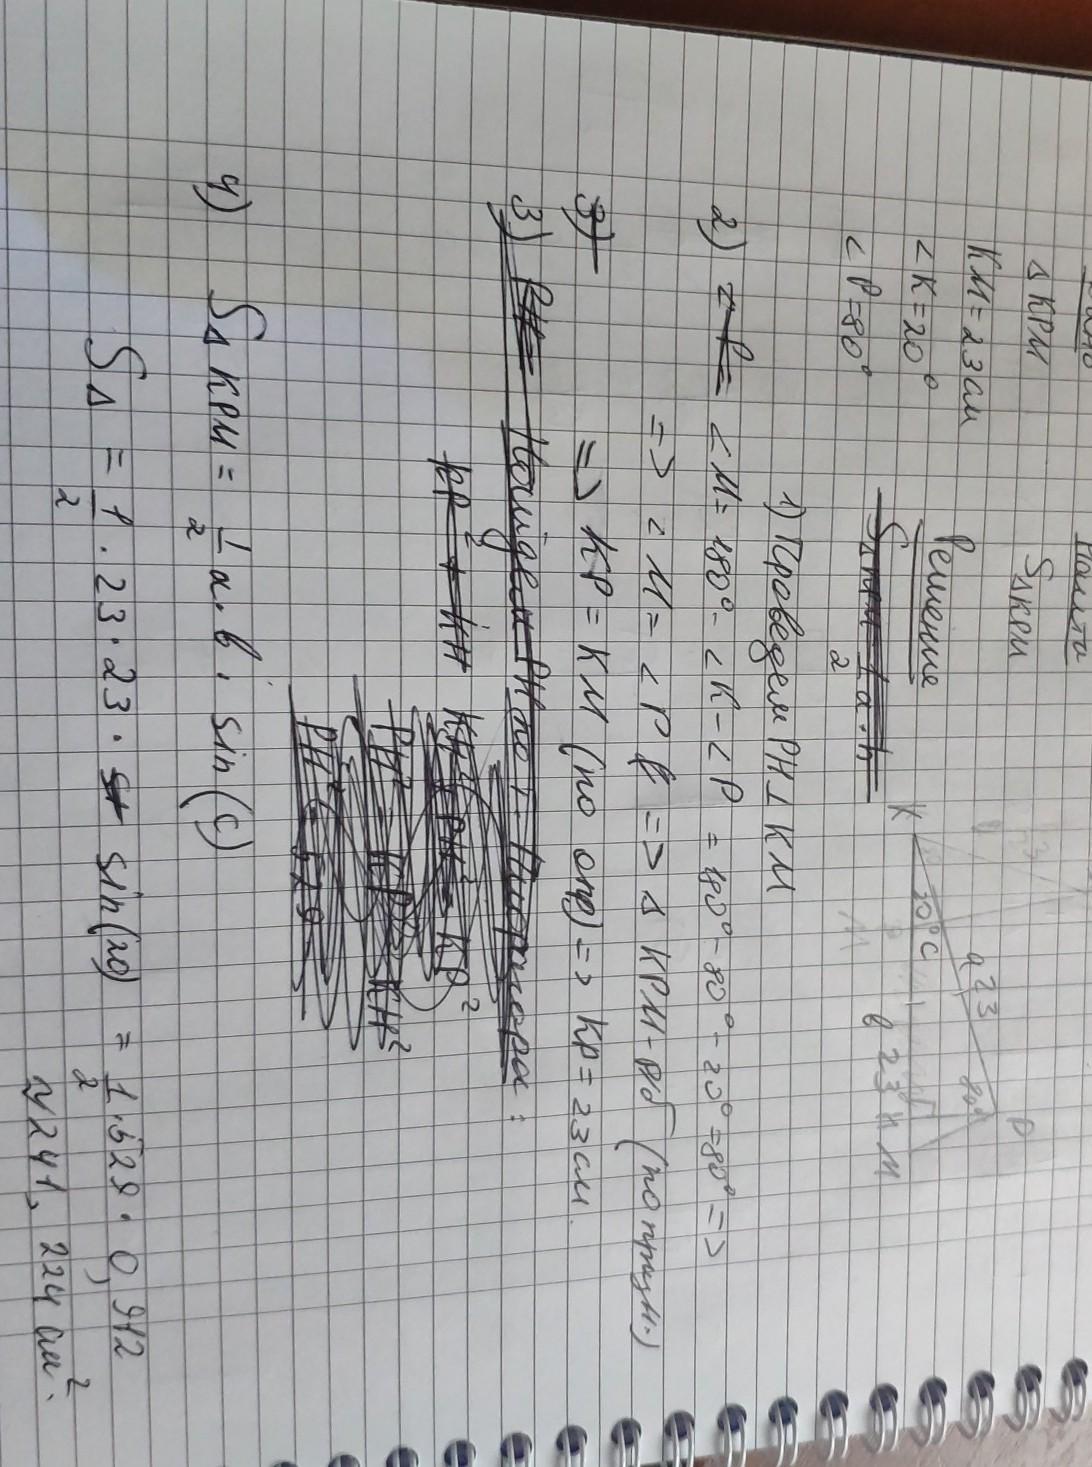 Δ KPM
KM = 23 см
∠K = 20°
∠P = 80°
Найти
SΔKPM
Решение
K
P
a 23
в 23
H M
1) Проведем PH ⊥ KM
2) ∠M = 180° - ∠K - ∠P = 180° - 80° - 20° = 80° =>
=> ∠M = ∠P => Δ KPM - рб (по призн.)
=> KP = KM (по опр) => KP = 23 см.
3) Найдем PH по т. Пифагора:
4) SΔKPM = 1/2 a · b · sin(c)
SΔ = 1/2 · 23 · 23 · sin(20) = 1/2 · 529 · 0,912
≈ 241, 224 см².